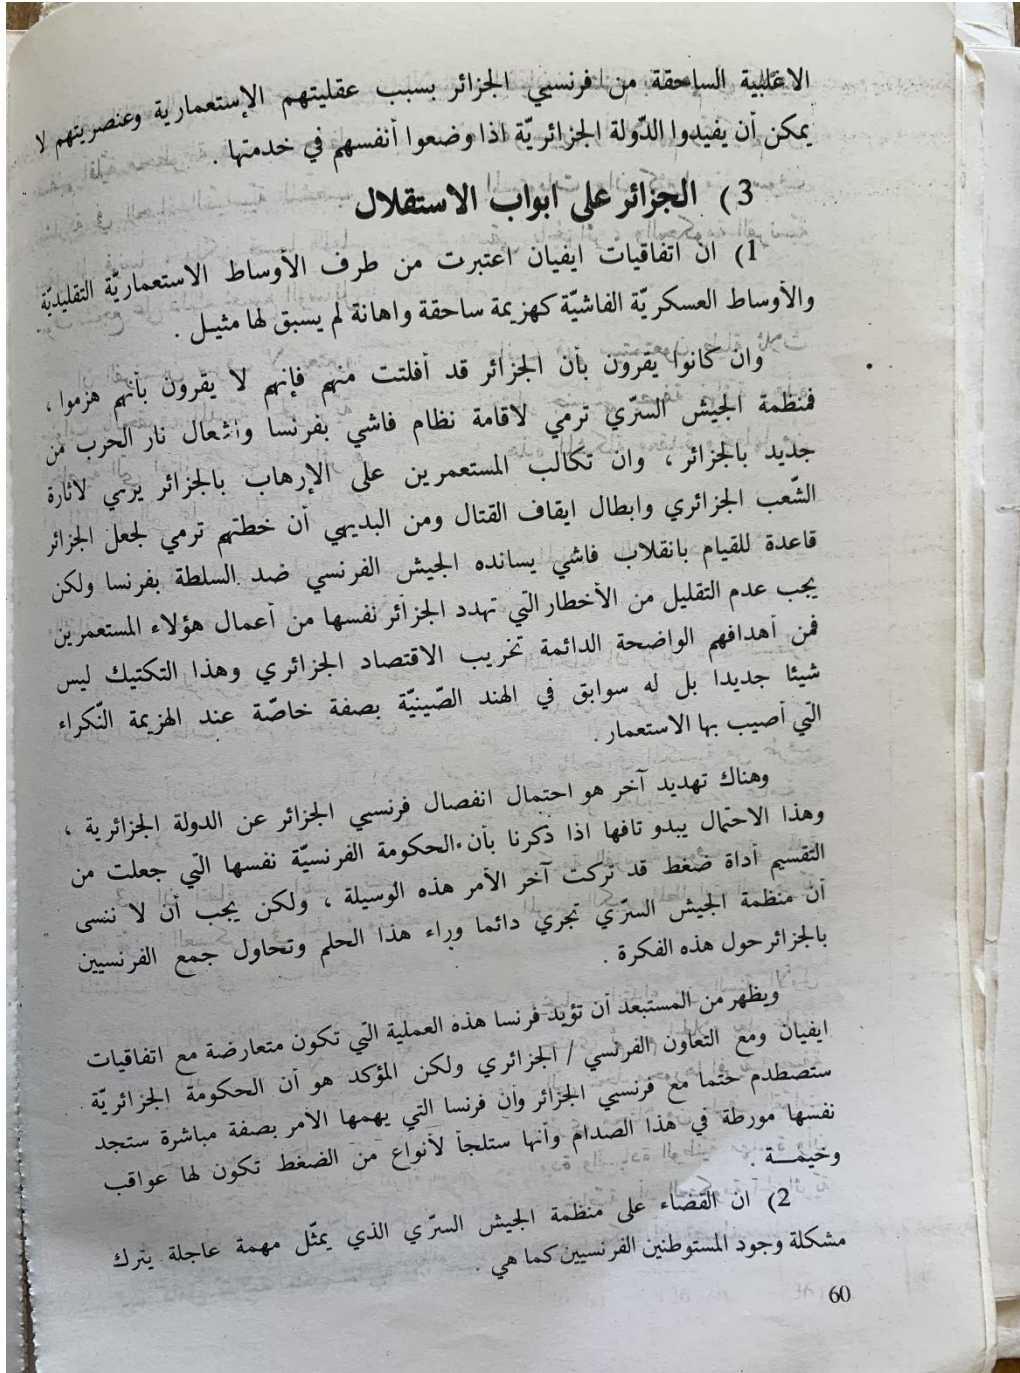 الاغلبية الساحقة من فرنسيي الجزائر بسبب عقليتهم الإستعمارية وعنصريتهم لا
يمكن أن يفيدوا الدّولة الجزائريّة اذا وضعوا أنفسهم في خدمتها .
3 ) الجزائر على ابواب الاستقلال
1) ان اتفاقيات ايفيان اعتبرت من طرف الأوساط الاستعماريّة التقليديّة
والأوساط العسكريّة الفاشيّة كهزيمة ساحقة واهانة لم يسبق لها مثيـل .
وان كانوا يقرون بأن الجزائر قد أفلتت منهم فإنهم لا يقرون بأنهم هزموا ،
فمنظمة الجيش السرّي ترمي لاقامة نظام فاشي بفرنسا واشعال نار الحرب من
جديد بالجزائر ، وان تكالب المستعمرين على الإرهاب بالجزائر يرمي لاثارة
الشّعب الجزائري وابطال ايقاف القتال ومن البديهي أن خطتهم ترمي لجعل الجزائر
قاعدة للقيام بانقلاب فاشي يسانده الجيش الفرنسي ضد السلطة بفرنسا ولكن
يجب عدم التقليل من الأخطار التي تهدد الجزائر نفسها من أعمال هؤلاء المستعمرين
فمن أهدافهم الواضحة الدائمة تخريب الاقتصاد الجزائري وهذا التكتيك ليس
شيئا جديدا بل له سوابق في الهند الصّينيّة بصفة خاصّة عند الهزيمة النّكراء
التي أصيب بها الاستعمار .
وهناك تهديد آخر هو احتمال انفصال فرنسيي الجزائر عن الدولة الجزائرية ،
وهذا الاحتمال يبدو تافها اذا ذكرنا بأن الحكومة الفرنسيّة نفسها التي جعلت من
التقسيم أداة ضغط قد تركت آخر الأمر هذه الوسيلة ، ولكن يجب أن لا ننسى
أن منظمة الجيش السرّي تجري دائما وراء هذا الحلم وتحاول جمع الفرنسيين
بالجزائر حول هذه الفكرة .
ويظهر من المستبعد أن تؤيد فرنسا هذه العملية التي تكون متعارضة مع اتفاقيات
ايفيان ومع التعاون الفرنسي / الجزائري ولكن المؤكد هو أن الحكومة الجزائريّة
ستصطدم حتما مع فرنسيي الجزائر وان فرنسا التي يهمها الأمر بصفة مباشرة ستجد
نفسها مورطة في هذا الصدام وأنها ستلجأ لأنواع من الضغط تكون لها عواقب
وخيمـــة .
2) ان القضاء على منظمة الجيش السرّي الذي يمثّل مهمة عاجلة يترك
مشكلة وجود المستوطنين الفرنسيين كما هي .
60